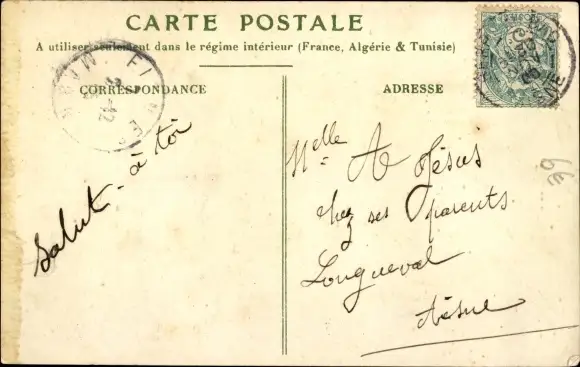 CARTE POSTALE
A utiliser seulement dans le régime intérieur (France, Algérie & Tunisie)
CORRESPONDANCE
ADRESSE
Salut à toi
Melle A
chez ses parents
Longueval
Aisne